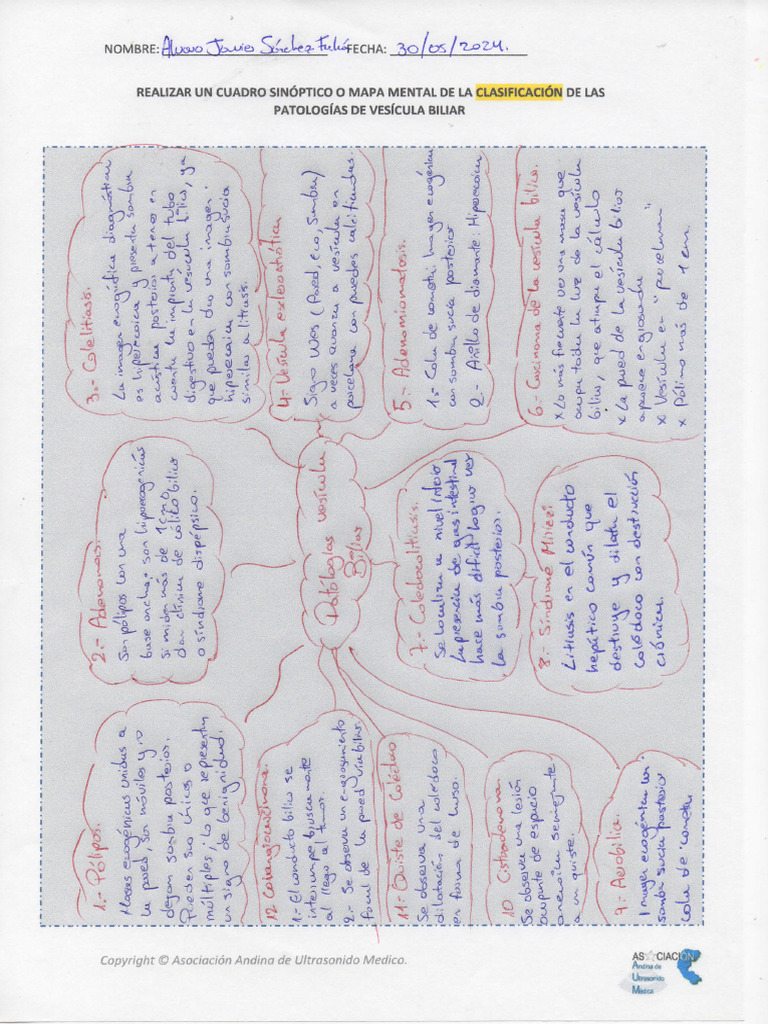 NOMBRE: Alvaro Javier Sánchez FECHA: 30/05/2024.
REALIZAR UN CUADRO SINÓPTICO O MAPA MENTAL DE LA CLASIFICACIÓN DE LAS
PATOLOGÍAS DE VESÍCULA BILIAR
Patologías vesícula
Biliar
1.- Pólipos.
Masas ecogénicas unidas a
la pared, son móviles y no
dejan sombra posterior.
Pueden ser únicos o
múltiples; lo que representan
un signo de benignidad.
2.- Adenomas.
Son pólipos con una
base ancha; son hipoecogénicos
si miden más de 1 cm
dan clínica de cólico biliar
o síndrome dispépsico.
3.- Colelitiasis.
La imagen ecográfica diagnóstica
es hiperecoica y presenta sombra
acústica posterior a tener en
cuenta la impronta del tubo
digestivo en la vesícula biliar, ya
que pueden dar una imagen
hiperecoica con sombra sucia
similar a litiasis.
4.- Vesícula escleroatrófica
Signo Wes (Pared, Eco, Sombra)
a veces avanza a vesícula en
porcelana con paredes calcificadas.
5.- Adenomiomatosis.
1.- Cola de cometa: Imagen ecogénica
con sombra sucia posterior
2.- Anillo de diamante: Hiperecoica
6.- Carcinoma de la vesícula biliar.
x Lo más frecuente ver una masa que
ocupa toda la luz de la vesícula
biliar, que atrapa el cálculo
x La pared de la vesícula biliar
aparece engrosada
x Vesícula en "porcelana"
x Pólipo más de 1 cm.
7.- Coledocolitiasis.
Se localiza a nivel inferior
la presencia de gas intestinal
hace más difícil lograr ver
la sombra posterior.
8.- Síndrome Mirizzi
Litiasis en el conducto
hepático común que
destruye y dilata el
colédoco con destrucción
crónica.
9.- Aerobilia.
Imagen ecogénica con
sombra sucia posterior
cola de cometa
10 Cistoadenoma.
Se observa una lesión
ocupante de espacio
anecoica semejante
a un quiste.
11.- Quiste de Colédoco
Se observa una
dilatación del colédoco
en forma de huso.
12 Colangiocarcinoma.
1.- El conducto biliar se
interrumpe bruscamente
al llegar al tumor.
2.- Se observa un engrosamiento
focal de la pared vía biliar.
Copyright © Asociación Andina de Ultrasonido Medico.
ASOCIACIÓN
Andina de
Ultrasonido
Médica